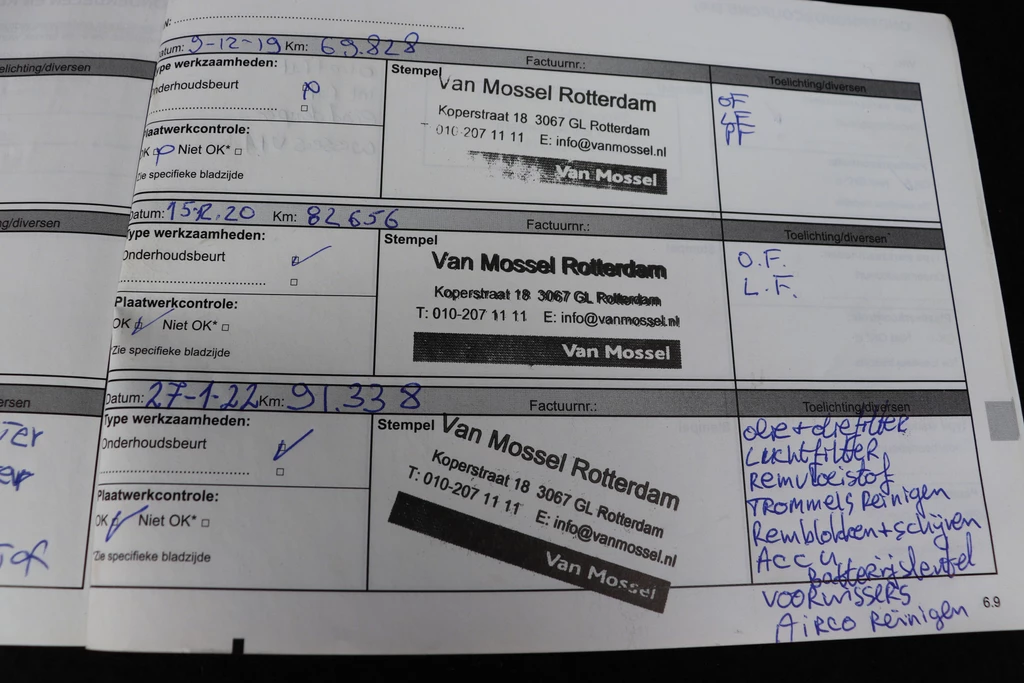 Datum: 9-12-19 Km: 69.828
Factuurnr.:
Toelichting/diversen
Type werkzaamheden:
Onderhoudsbeurt
Plaatwerkcontrole:
OK Niet OK*
Zie specifieke bladzijde
Stempel
Van Mossel Rotterdam
Koperstraat 18 3067 GL Rotterdam
T 010-207 11 11 E: info@vanmossel.nl
Van Mossel
OF
LF
PF
Datum: 15.12.20 Km: 82656
Factuurnr.:
Toelichting/diversen
Type werkzaamheden:
Onderhoudsbeurt
Plaatwerkcontrole:
OK Niet OK*
Zie specifieke bladzijde
Stempel
Van Mossel Rotterdam
Koperstraat 18 3067 GL Rotterdam
T: 010-207 11 11 E: info@vanmossel.nl
Van Mossel
O.F.
L.F.
Datum: 27-1-22 Km: 91.338
Factuurnr.:
Toelichting/diversen
Type werkzaamheden:
Onderhoudsbeurt
Plaatwerkcontrole:
OK Niet OK*
Zie specifieke bladzijde
Stempel
Van Mossel Rotterdam
Koperstraat 18 3067 GL Rotterdam
T: 010-207 11 11 E: info@vanmossel.nl
Van Mossel
olie + oliefilter
Luchtfilter
Remvloeistof
Trommels Reinigen
Remblokken + schijven
Accu
Batterijsleutel
Voorwissers
Airco Reinigen
6.9